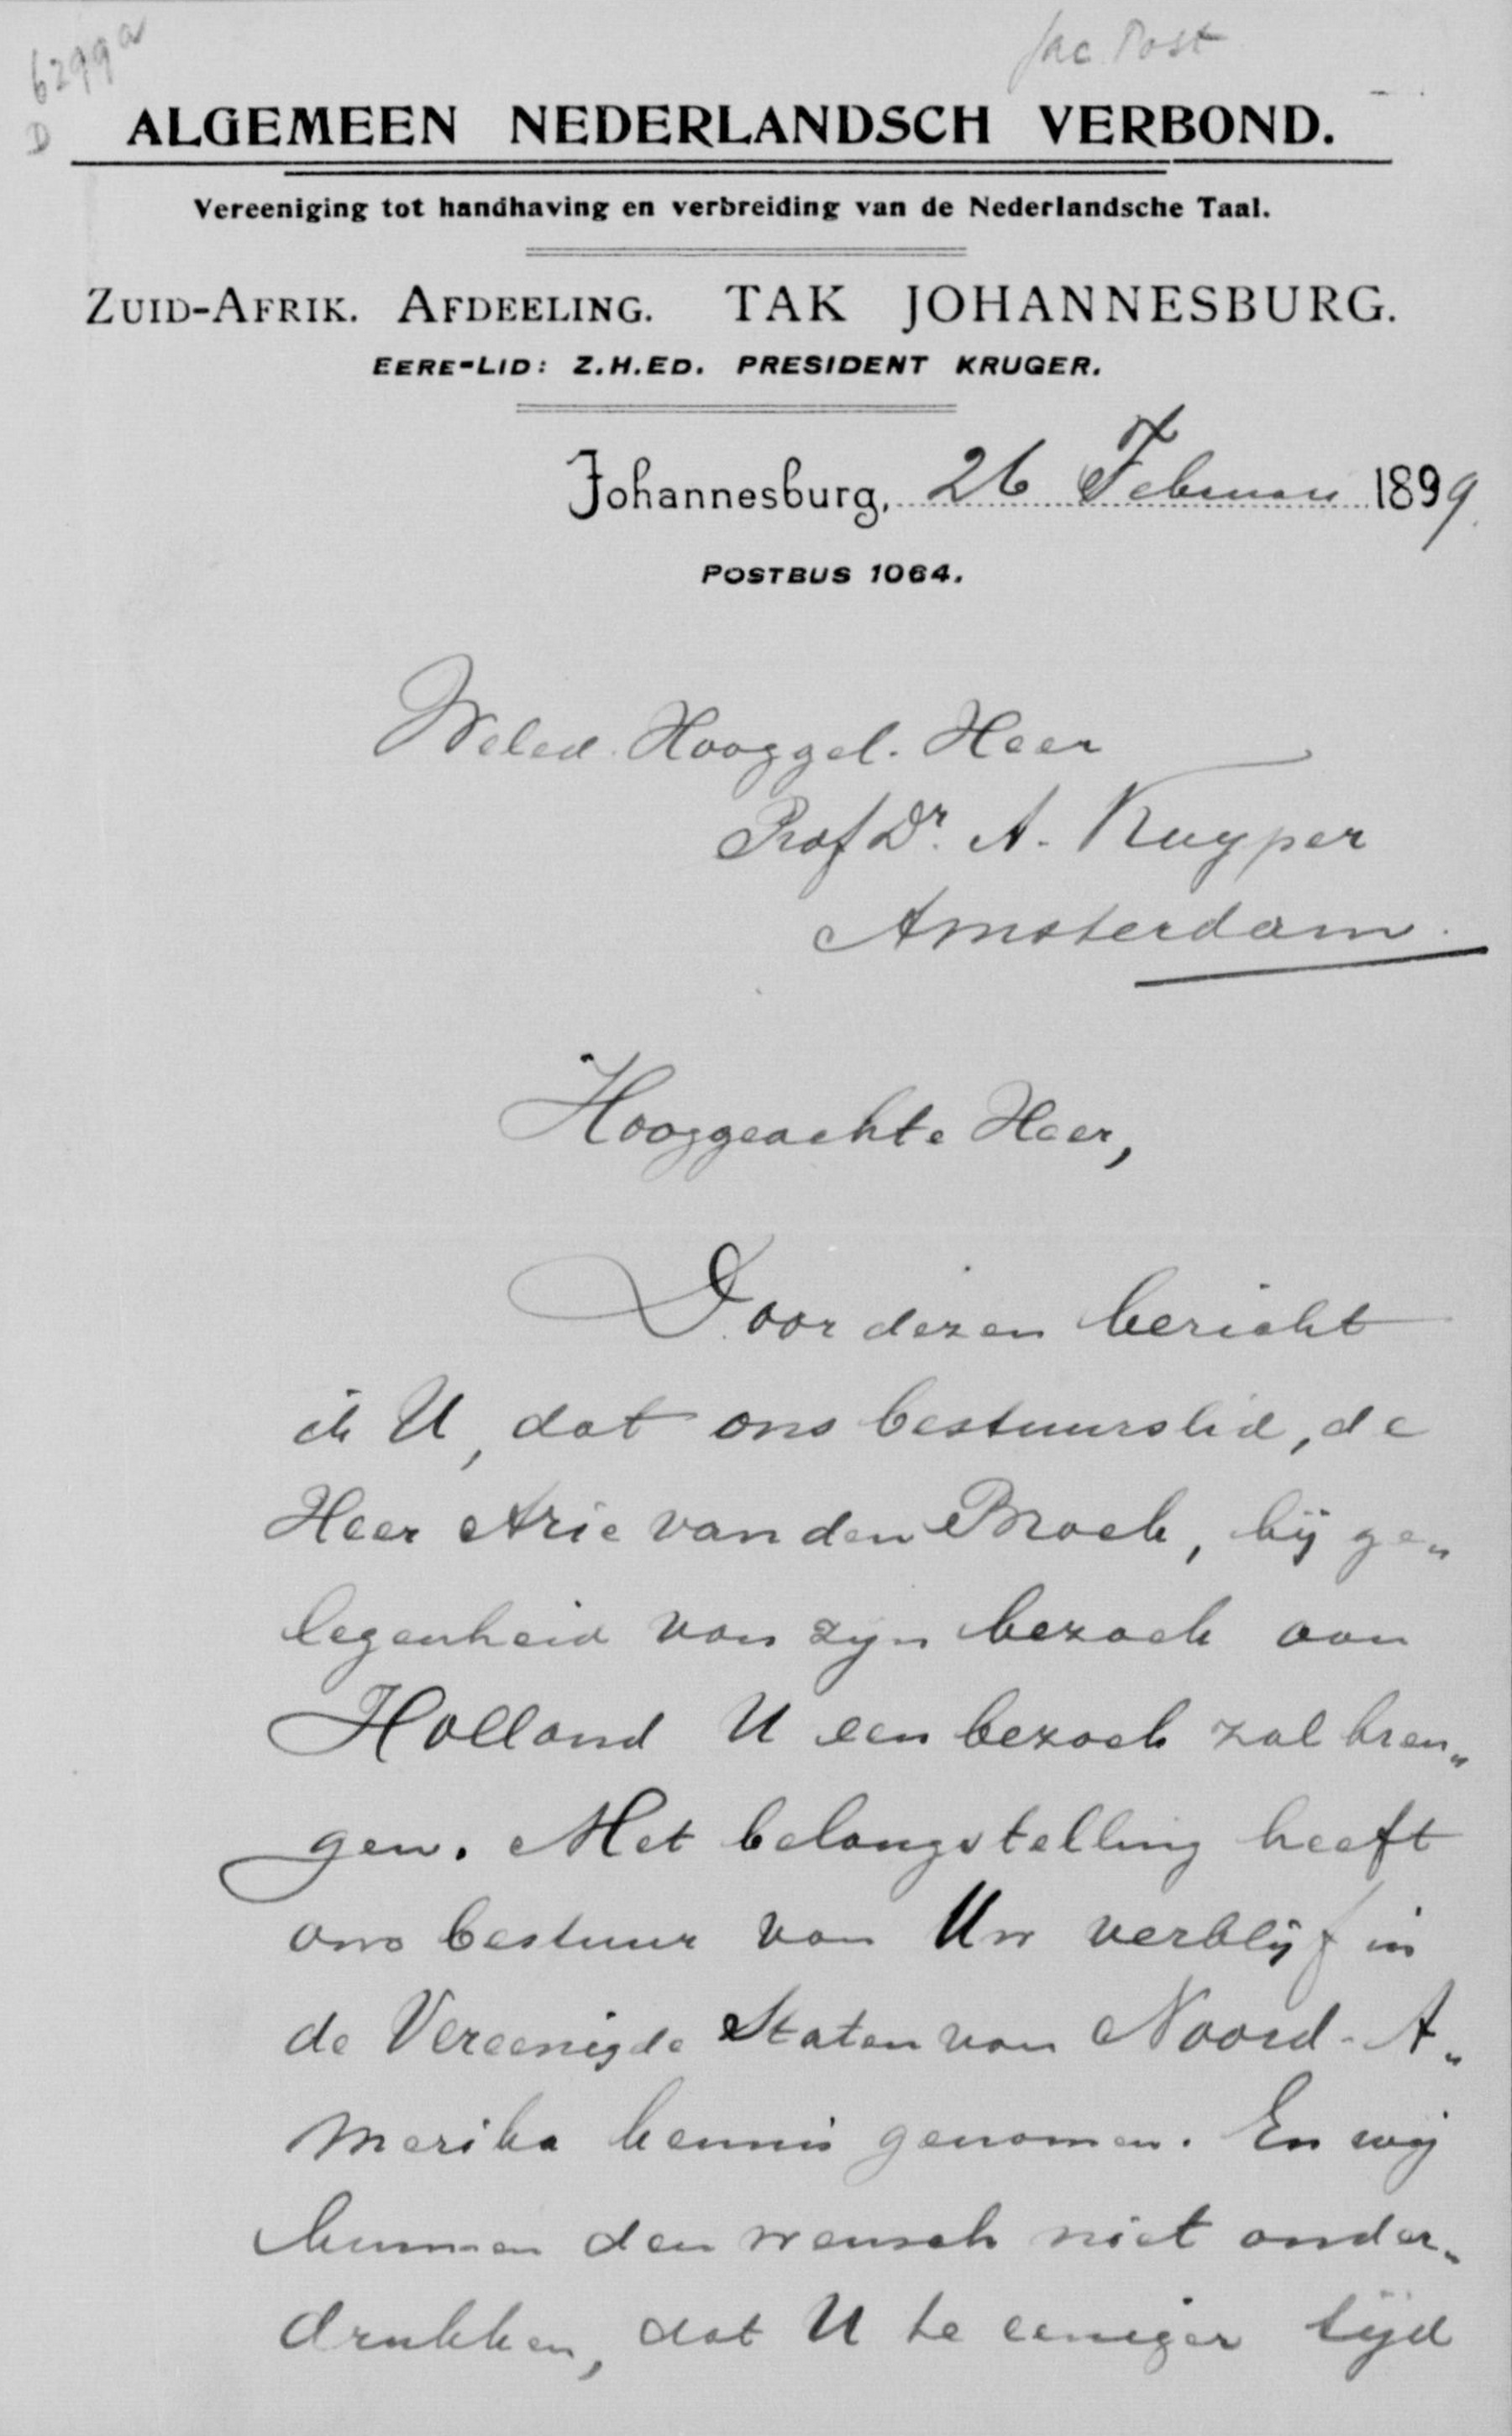 6299a
D
Jac Post
ALGEMEEN NEDERLANDSCH VERBOND.
Vereeniging tot handhaving en verbreiding van de Nederlandsche Taal.
ZUID-AFRIK. AFDEELING. TAK JOHANNESBURG.
EERE-LID: Z.H.ED. PRESIDENT KRUGER.
Johannesburg, 26 Februari 1899.
POSTBUS 1064.
Weled. Hooggel. Heer
Prof Dr. A. Kuyper
Amsterdam.
Hooggeachte Heer,
Door dezen bericht
ik U, dat ons bestuurslid, de
Heer Arie van den Broek, bij ge„
legenheid van zijn bezoek aan
Holland U een bezoek zal bren„
gen. Met belangstelling heeft
ons bestuur van Uw verblijf in
de Vereenigde Staten van Noord-A„
merika kennis genomen. En wij
kunnen den wensch niet onder„
drukken, dat U te eeniger tijd